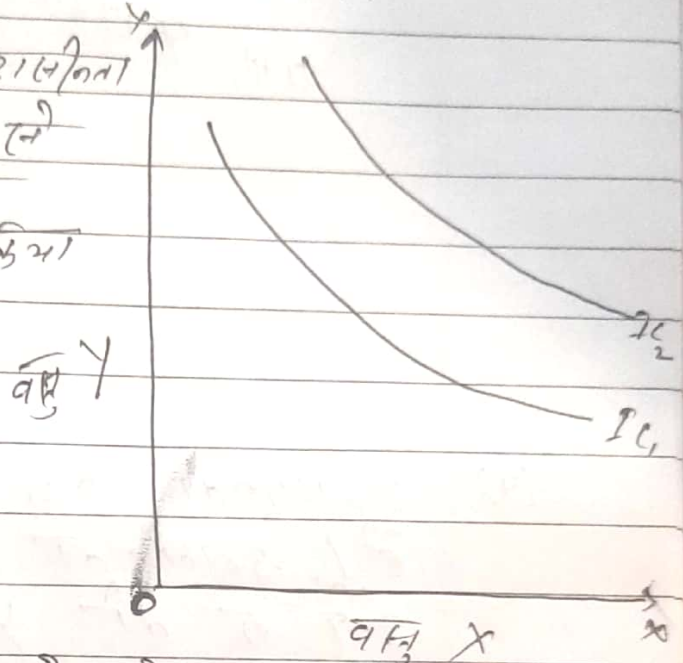 Y
तो
किया
वस्तु Y
IC2
IC1
O
वस्तु X
X